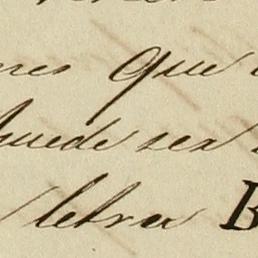 nes que
puede ser
letra B